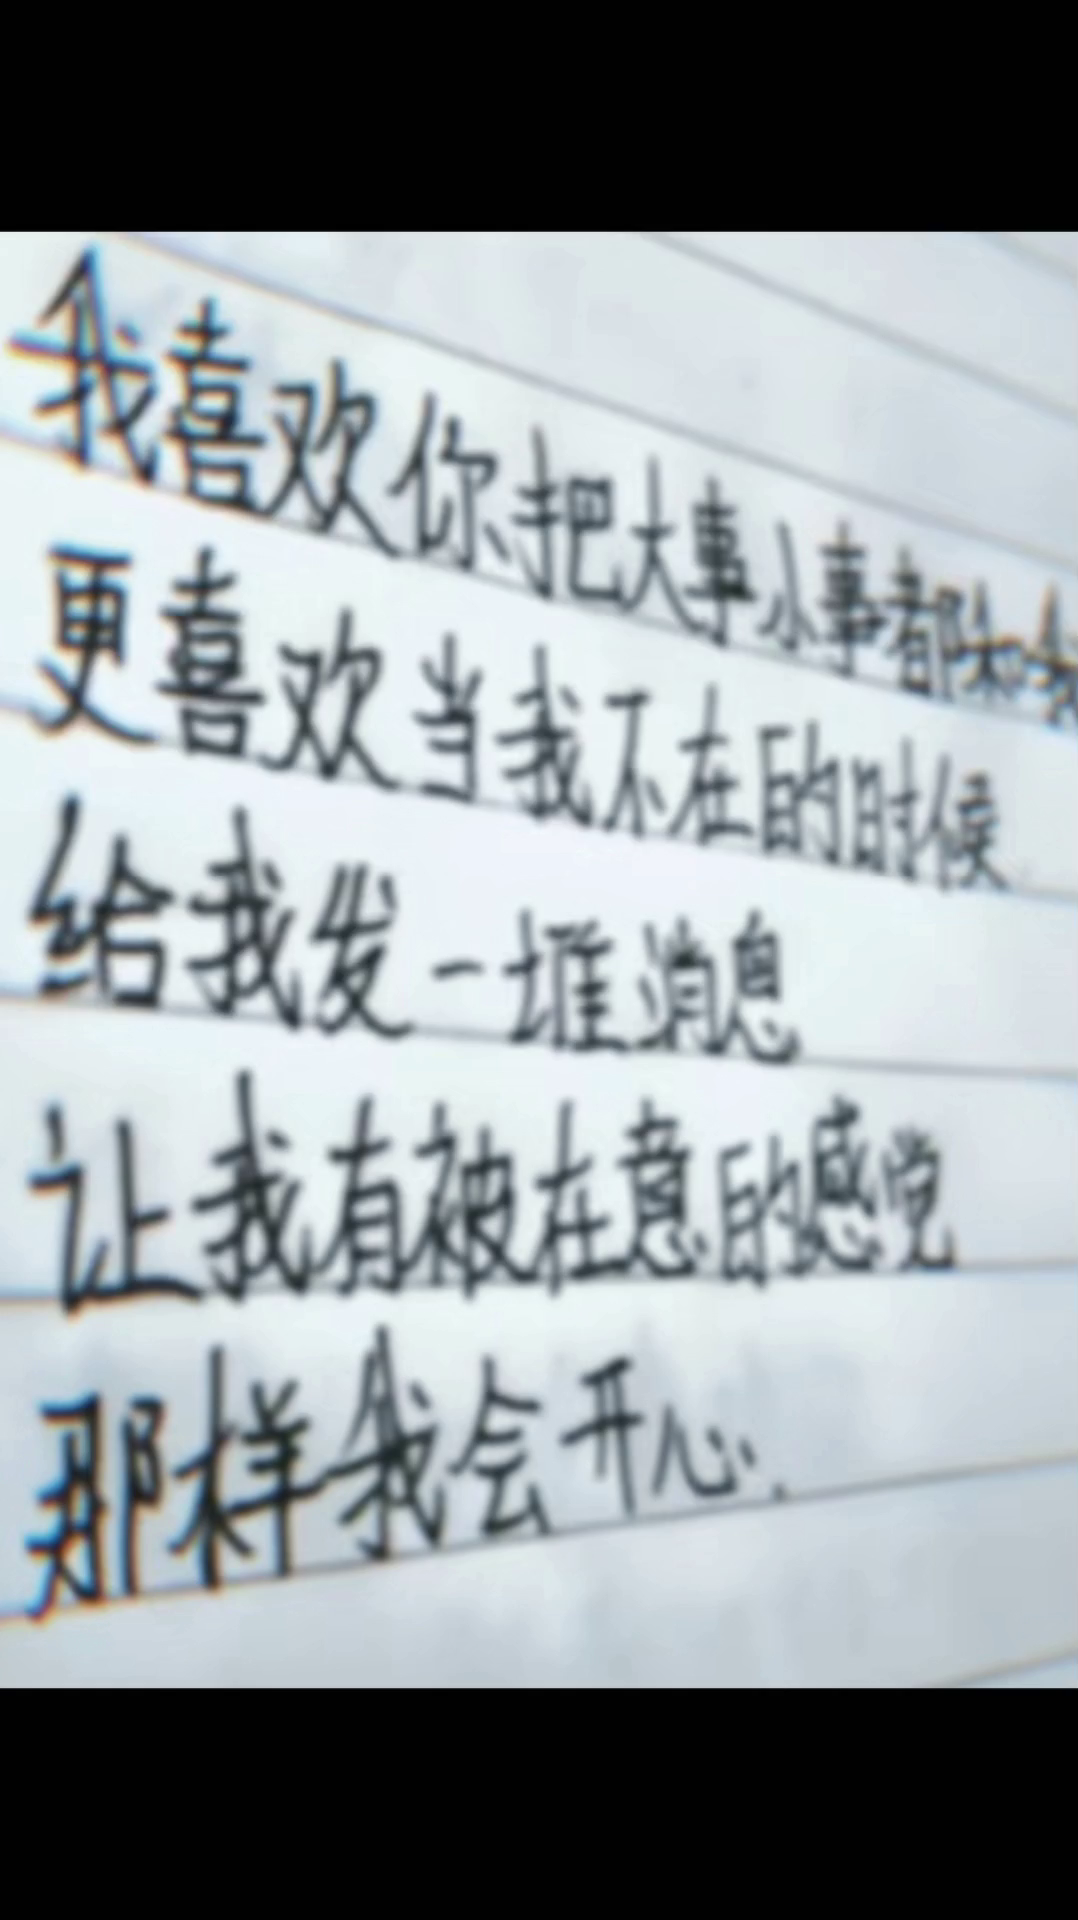 我喜欢你把大事小事都和我
更喜欢当我不在的时候
给我发一堆消息
让我有被在意的感觉
那样我会开心.